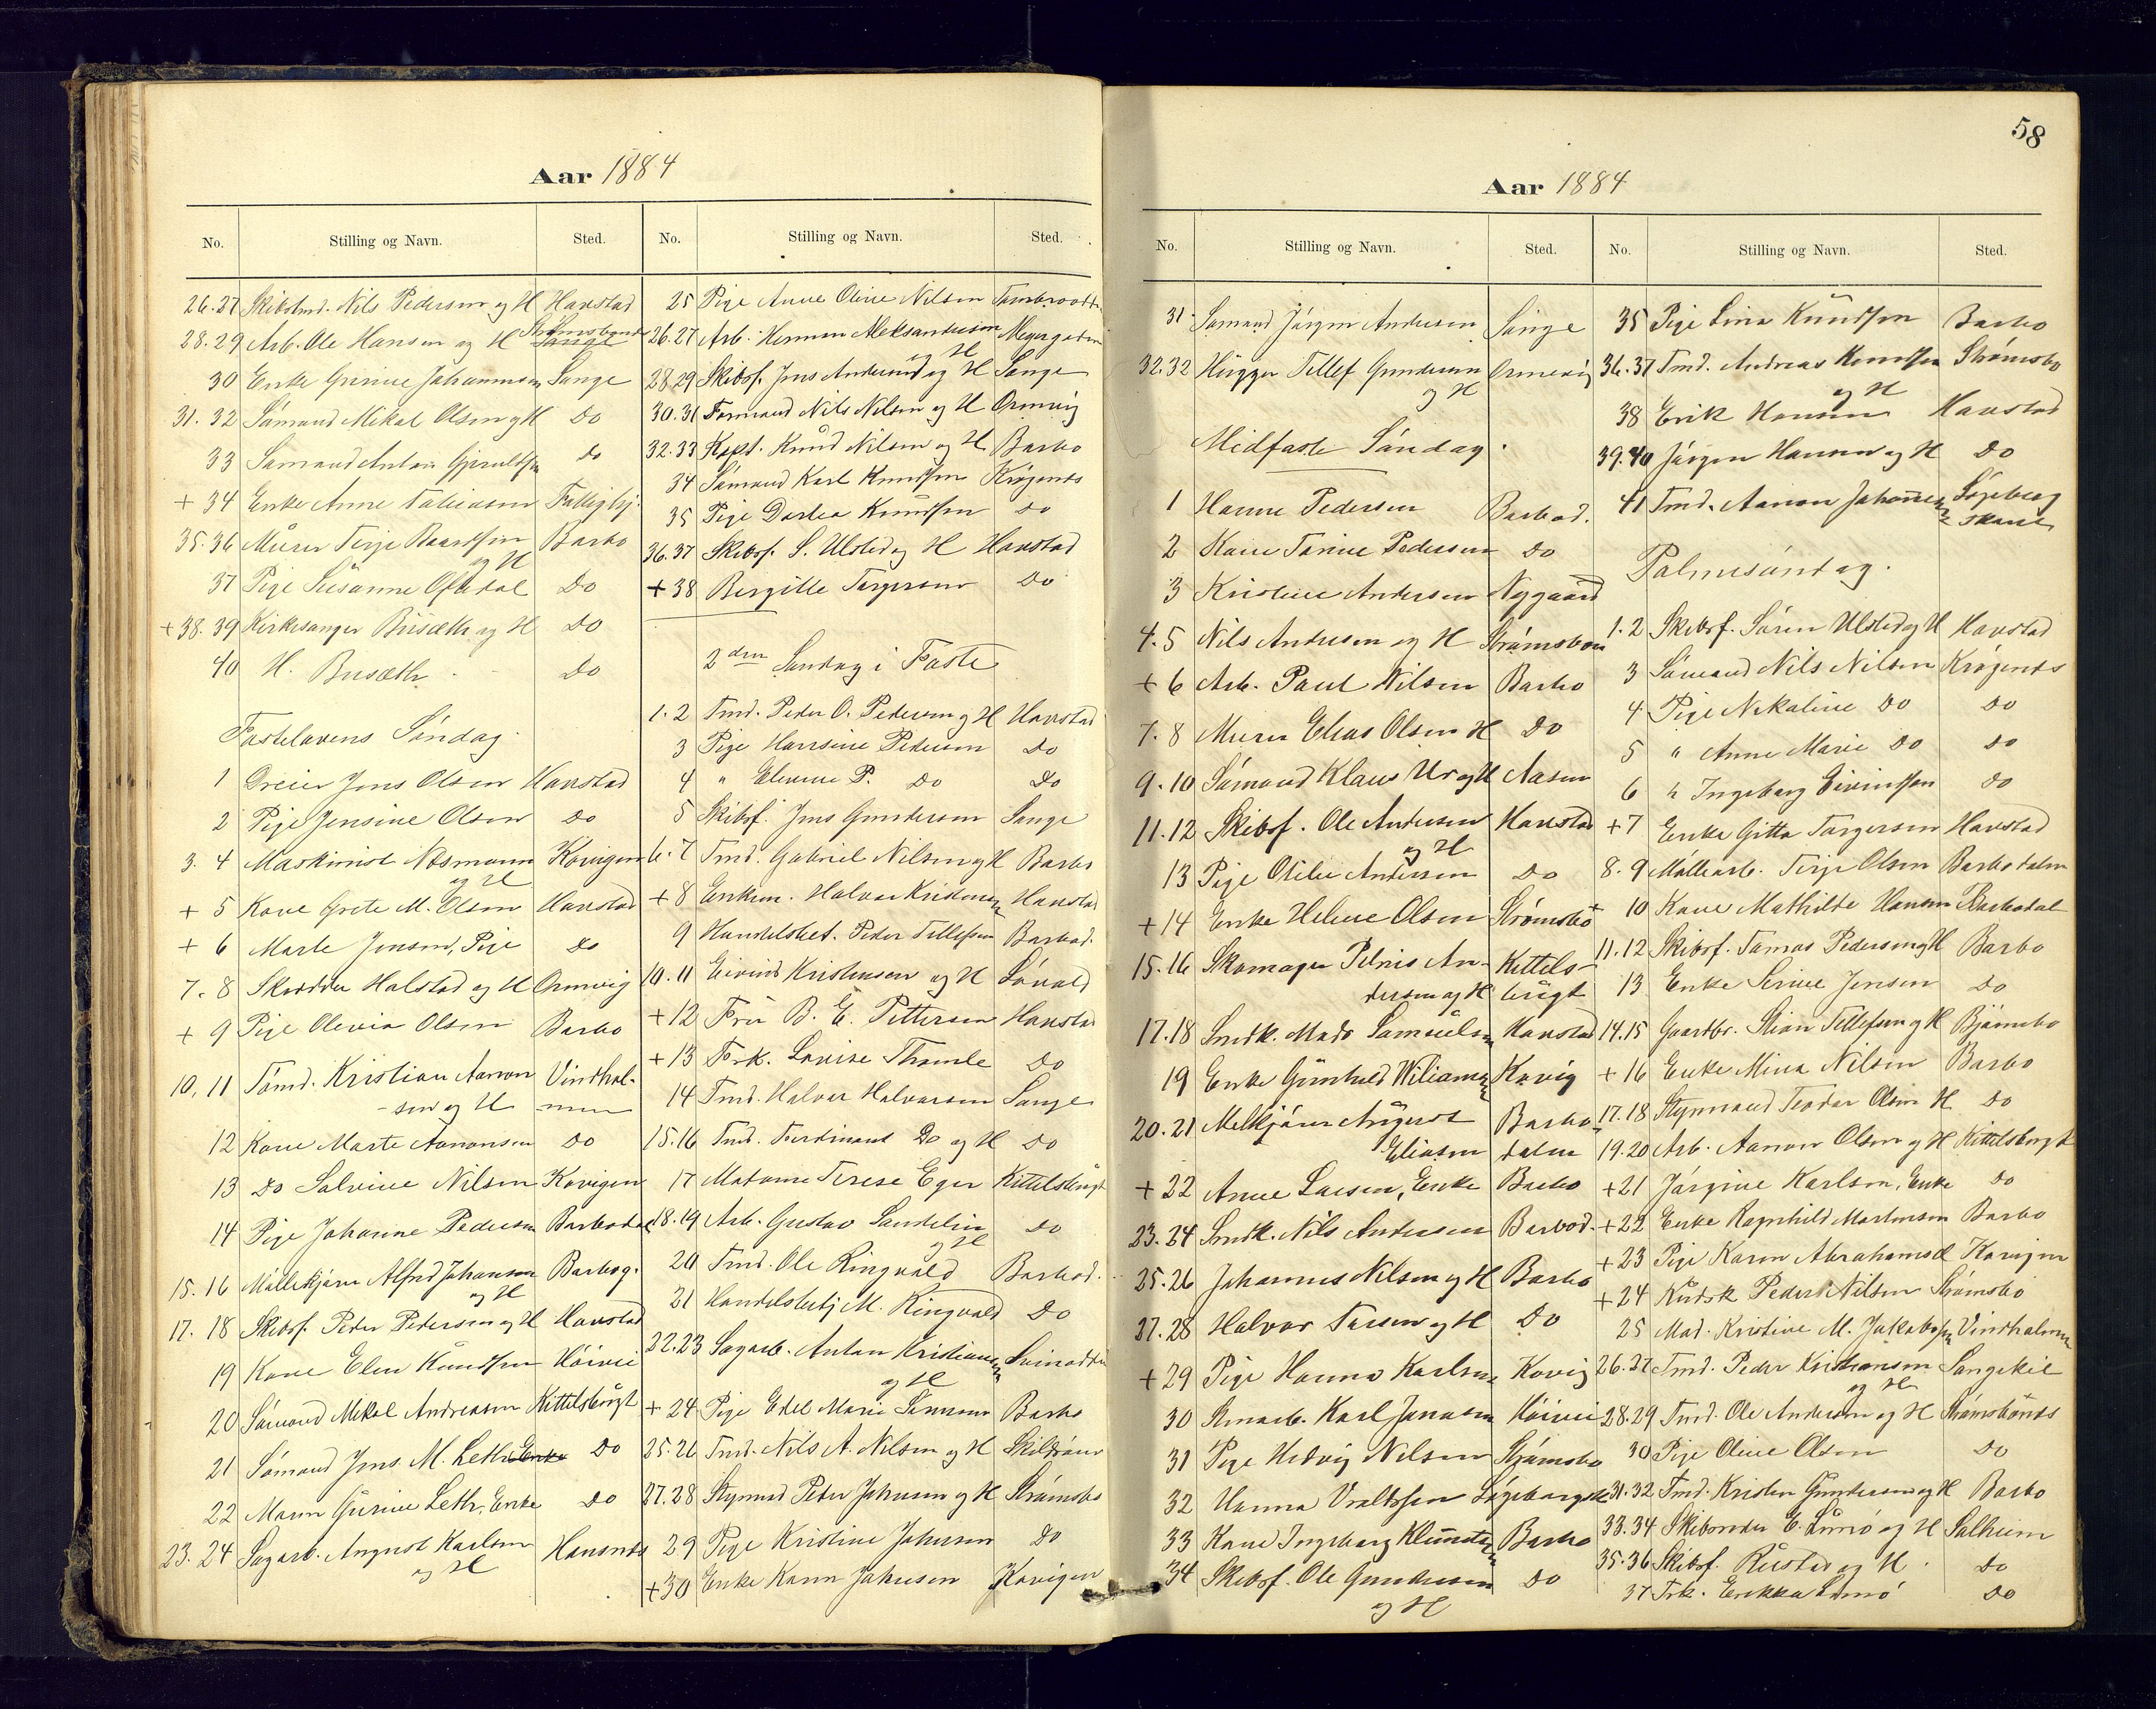 58
Aar 1884
No. Stilling og Navn. Sted.
26.27 Skibstmd. Nils Pedersen og H Havstad
28.29 Arb. Ole Hansen og H Strømsbunds
30 Enke Gurine Johannesen Songe
31.32 Sømand Mikal Olsen og H Do
33 Sømand Anton Do
+ 34 Enke Anne
35.36 Murer Terje Baardsen Barbo
og H
37 Pige Susanne Oftedal Do
+38.39 Kirkesanger Busæth og H Do
40 H. Busæth Do
Fastelavens Søndag
1 Dreier Jens Olsen Havstad
2 Pige Jensine Olsen Do
3. 4 Maskinist Kovigen
og H
+ 5 Kone Grete M. Olsen Havstad
+ 6 Marte Jensen, Pige Do
7. 8 Skrædder Halstad og H Ormvig
+ 9 Pige Olevia Olsen Barbo
10, 11 Tømd. Kristian Aanon Vindhol-
sen og H men
12 Kone Marte Aanonsen Do
13 Do Salvine Nilsen Kovigen
14 Pige Johanne Pedersen Barbodal
15. 16 Møllekjører Alfred Johansen Barbog.
og H
17. 18 Skibsf. Peder Pedersen og H Havstad
19 Kone Elen Knudsen Høivei
20 Sømand Mikal Andreasen Kittelsbugt
21 Sømand Jens M. Leth Do
22 Maren Gurine Leth, Enke Do
23. 24 Sagarb. August Karlsen Havsnds
og H
No. Stilling og Navn. Sted.
25 Pige Anne Oline Nilsen
26.27 Arb. Herman Aleksandersen Meyergaden
og H
28.29 Skibsf. Jens Andersen og H Songe
30.31 Formand Nils Nilsen og H Ormvig
32.33 Kapt. Knud Nilsen og H Barbo
34 Sømand Karl Knudsen Krøgenes
35 Pige Dortea Knudsen Do
36.37 Skibsf. S. Ulsted og H Havstad
+38 Bergitte Torgersen Do
2den Søndag i Faste
1.2 Tmd. Peder O. Pedersen og H Havstad
3 Pige Hansine Pedersen Do
4 " Elevine P. Do Do
5 Skibsf. Jens Gundersen Songe
6.7 Tmd. Gabriel Nilsen og H Barbo
+8 Enkem. Halvor Kristensen Havstad
9 Handelsbet. Peder Tellefsen Barbod.
10.11 Eivind Kristensen og H
+12 Fru B. E. Pettersen Havstad
+13 Frk. Lovise Thomle Do
14 Tmd. Halvor Halvorsen Songe
15.16 Tmd. Ferdinand Do og H Do
17 Madame Terese Eger Kittelsbugt
18.19 Arb. Gustav Sandelin Do
og H
20 Tmd. Ole Ringvold Barbod.
21 Handelsbetj M. Ringvold Do
22.23 Sagarb. Anton Kristiansen
og H
+ 24 Pige Edel Marie Barbo
25.26 Tmd. Nils A. Nilsen og H
27.28 Styrmd Peter Johnsen og H Strømsbo
29 Pige Kristine Johnsen Do
+30 Enke Karen Johnsen Kovigen
Aar 1884
No. Stilling og Navn. Sted.
31 Sømand Jørgen Andersen Songe
32.32 Hugger Tellef Gundersen Ormevig
og H
Midfaste Søndag.
1 Hanne Pedersen Barbod.
2 Kone Tonine Pedersen Do
3 Kristine Andersen Nygaard
4.5 Nils Andersen og H
+ 6 Arb. Paul Nilsen Barbo
7. 8 Murer Elias Olsen H Do
9.10 Sømand Klaus Ur og H Aasen
11.12 Skibsf. Ole Andersen Havstad
og H
13 Pige Otilie Andersen Do
+ 14 Enke Helene Olsen Strømsbo
15.16 Skomager An- Kittels-
dersen og H bugt
17.18 Smdk. Mads Samuelsen Havstad
19 Enke Gunhild Wiliamsen Kovig
20.21 Melkjører August Barbo-
Eliasen dalen
+ 22 Anne Larsen, Enke Barbo
23.24 Smdk. Nils Andersen Barbod.
25.26 Johannes Nilsen og H Barbo
27.28 Halvor Tarsen og H Do
+ 29 Pige Hanna Karlsen Kovig
30 Karl Jonasen Høivei
31 Pige Hedvig Nilsen Strømsbo
32 Hanna
33 Kone Ingeborg Barbo
34 Skibsf. Ole Gundersen Do
og H
No. Stilling og Navn. Sted.
35 Pige Lina Knudsen Barbo
36.37 Tmd. Andreas Knudsen Strømsbo
og H
38 Erik Hansen Havstad
39.40 Jørgen Hansen og H Do
41 Tmd. Aanon Johannesen
Palmesøndag.
1.2 Skibsf. Søren Ulsted og H Havstad
3 Sømand Nils Nilsen Krøgenes
4 Pige Nikoline Do Do
5 " Anne Marie Do Do
6 " Ingeborg Eivindsen Do
+7 Enke Gitta Torgersen Havstad
8.9 Møllearb. Terje Olsen Barbodalen
+ 10 Kone Mathilde Hansen Barbodal
11.12 Skibsf. Tomas Pedersen og H Barbo
13 Enke Serine Jensen Do
14.15 Gaardbr. Stian Tellefsen og H Bjørnebo
+ 16 Enke Mina Nilsen Barbo
17.18 Styrmand Teodor Olsen H Do
19.20 Arb. Aanon Olsen og H Kittelsbugt
+21 Jørgine Karlsen, Enke Do
+22 Enke Ragnhild Martinsen Barbo
+23 Pige Karen Abrahamsd Kovigen
+24 Kudsk Peder Nilsen Strømsbo
25 Mad. Kristine M. Jakobsen Vindholmen
26.27 Tmd. Peder Kristiansen Songekil
og H
28.29 Tmd. Ole Andersen og H Strømsbunds
30 Pige Oline Olsen Do
31.32 Tmd. Kristen Gundersen og H Barbo
33.34 Skibsreder E. Lunø og H Solheim
35.36 Skibsf. Rustad og H Do
37 Frk. Erikka Lunø Do